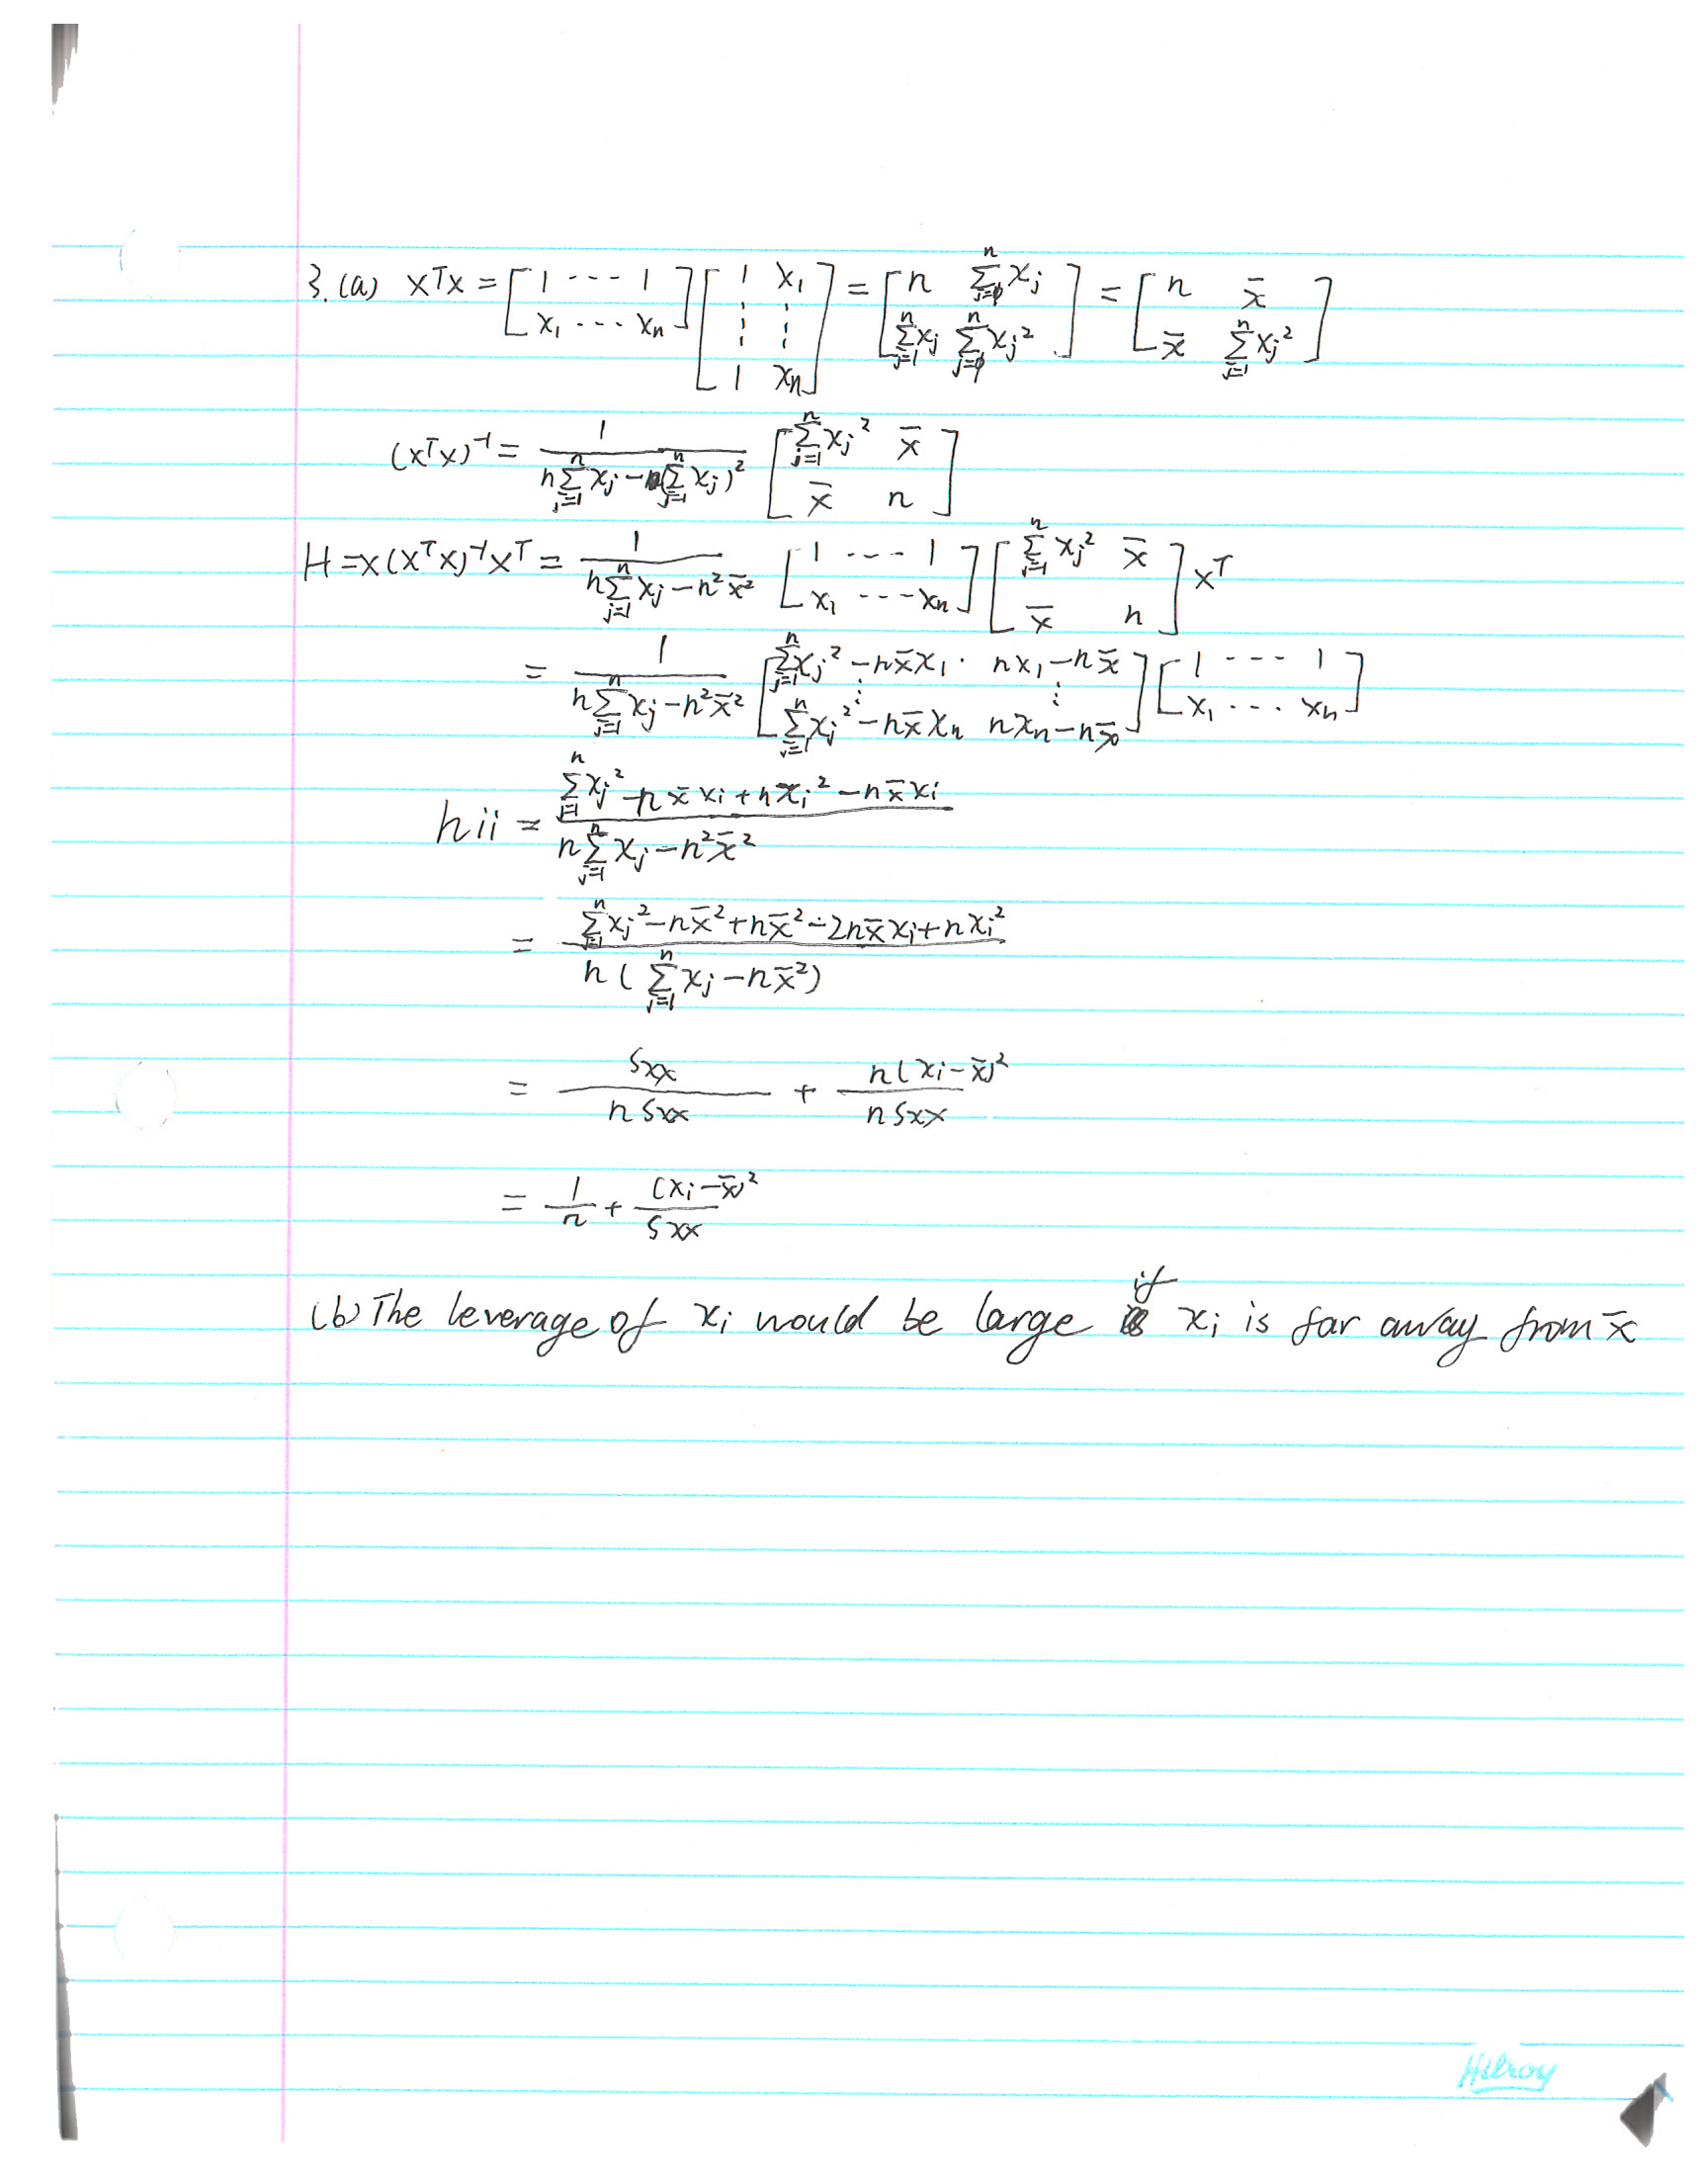 3. (a) X^T X = [1 --- 1; x₁ ... xₙ] [1 x₁; ⋮ ⋮; 1 xₙ] = [n Σⁿⱼ₌₁ xⱼ; Σⁿⱼ₌₁ xⱼ Σⁿⱼ₌₁ xⱼ²] = [n x̄; x̄ Σⁿⱼ₌₁ xⱼ²]
(X^T X)⁻¹ = 1 / (n Σⁿⱼ₌₁ xⱼ - (Σⁿⱼ₌₁ xⱼ)²) [Σⁿⱼ₌₁ xⱼ² x̄; x̄ n]
H = X (X^T X)⁻¹ X^T = 1 / (n Σⁿⱼ₌₁ xⱼ - n² x̄²) [1 --- 1; x₁ --- xₙ] [Σⁿⱼ₌₁ xⱼ² x̄; x̄ n] X^T
= 1 / (n Σⁿⱼ₌₁ xⱼ - n² x̄²) [Σⁿⱼ₌₁ xⱼ² - n x̄ x₁ n x₁ - n x̄; ⋮ ⋮; Σⁿⱼ₌₁ xⱼ² - n x̄ xₙ n xₙ - n x̄] [1 --- 1; x₁ ... xₙ]
hii = (Σⁿⱼ₌₁ xⱼ² - n x̄ xᵢ + n xᵢ² - n x̄ xᵢ) / (n Σⁿⱼ₌₁ xⱼ - n² x̄²)
= (Σⁿⱼ₌₁ xⱼ² - n x̄² + n x̄² - 2n x̄ xᵢ + n xᵢ²) / (n (Σⁿⱼ₌₁ xⱼ - n x̄²))
= Sxx / (n Sxx) + n(xᵢ - x̄)² / (n Sxx)
= 1/n + (xᵢ - x̄)² / Sxx
(b) The leverage of xᵢ would be large if xᵢ is far away from x̄
Hilroy